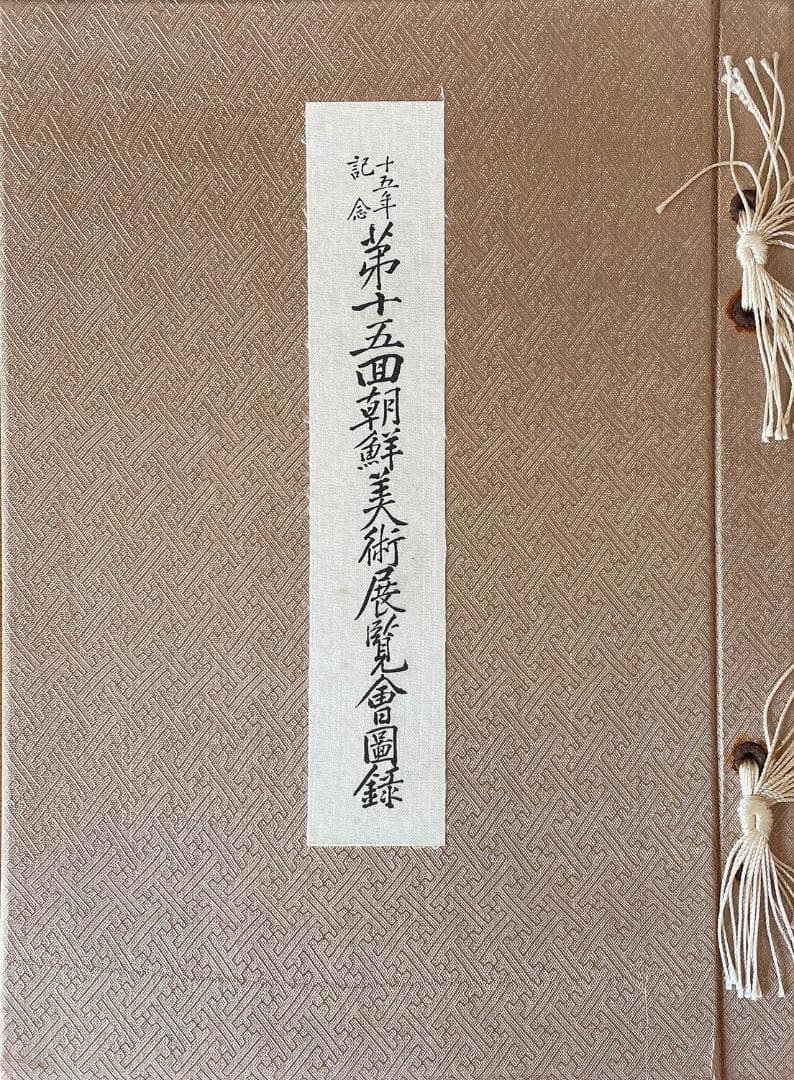 十五年
記念
第十五回朝鮮美術展覽會圖録